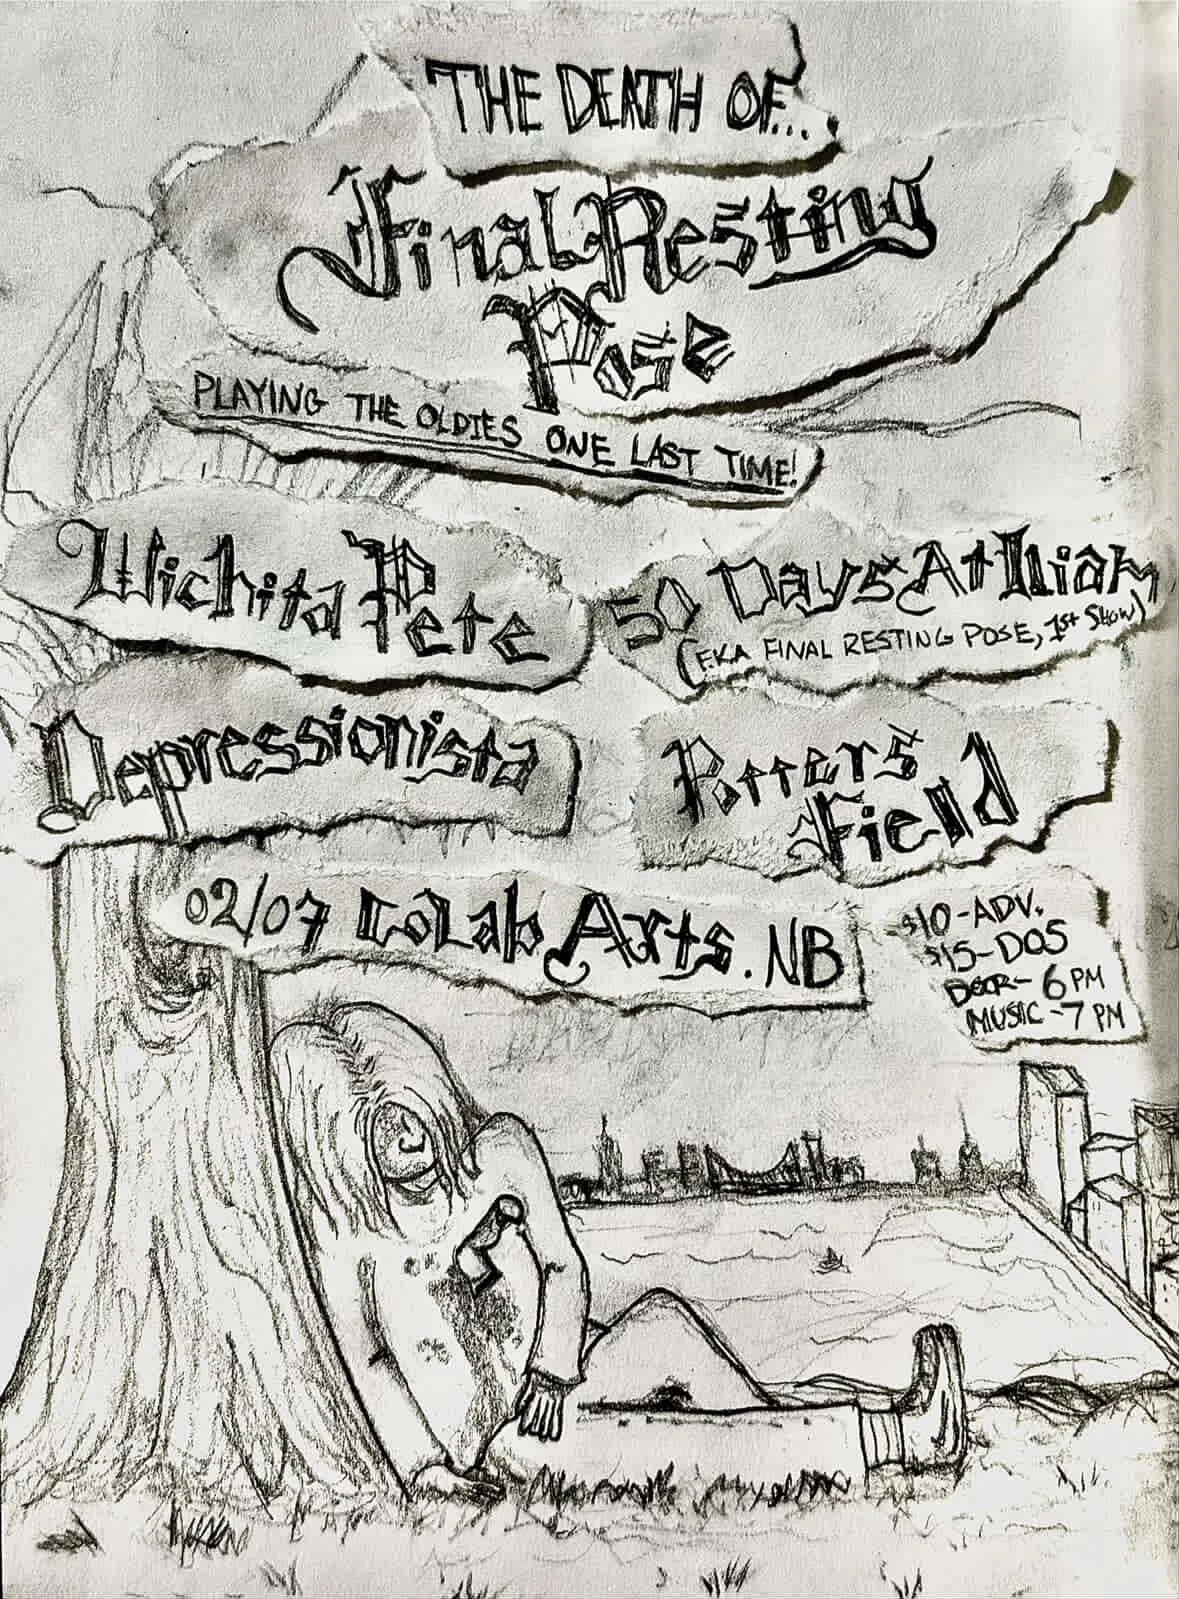 THE DEATH OF...
Final Resting
Pose
PLAYING THE OLDIES ONE LAST TIME!
Wichita Pete
50 Days At Iliam
(F.K.A FINAL RESTING POSE, 1st SHOW)
Depressionista
Potters
Fiend
02/07 CoLab Arts. NB
$10-ADV.
$15-DOS
DOOR- 6 PM
MUSIC-7 PM